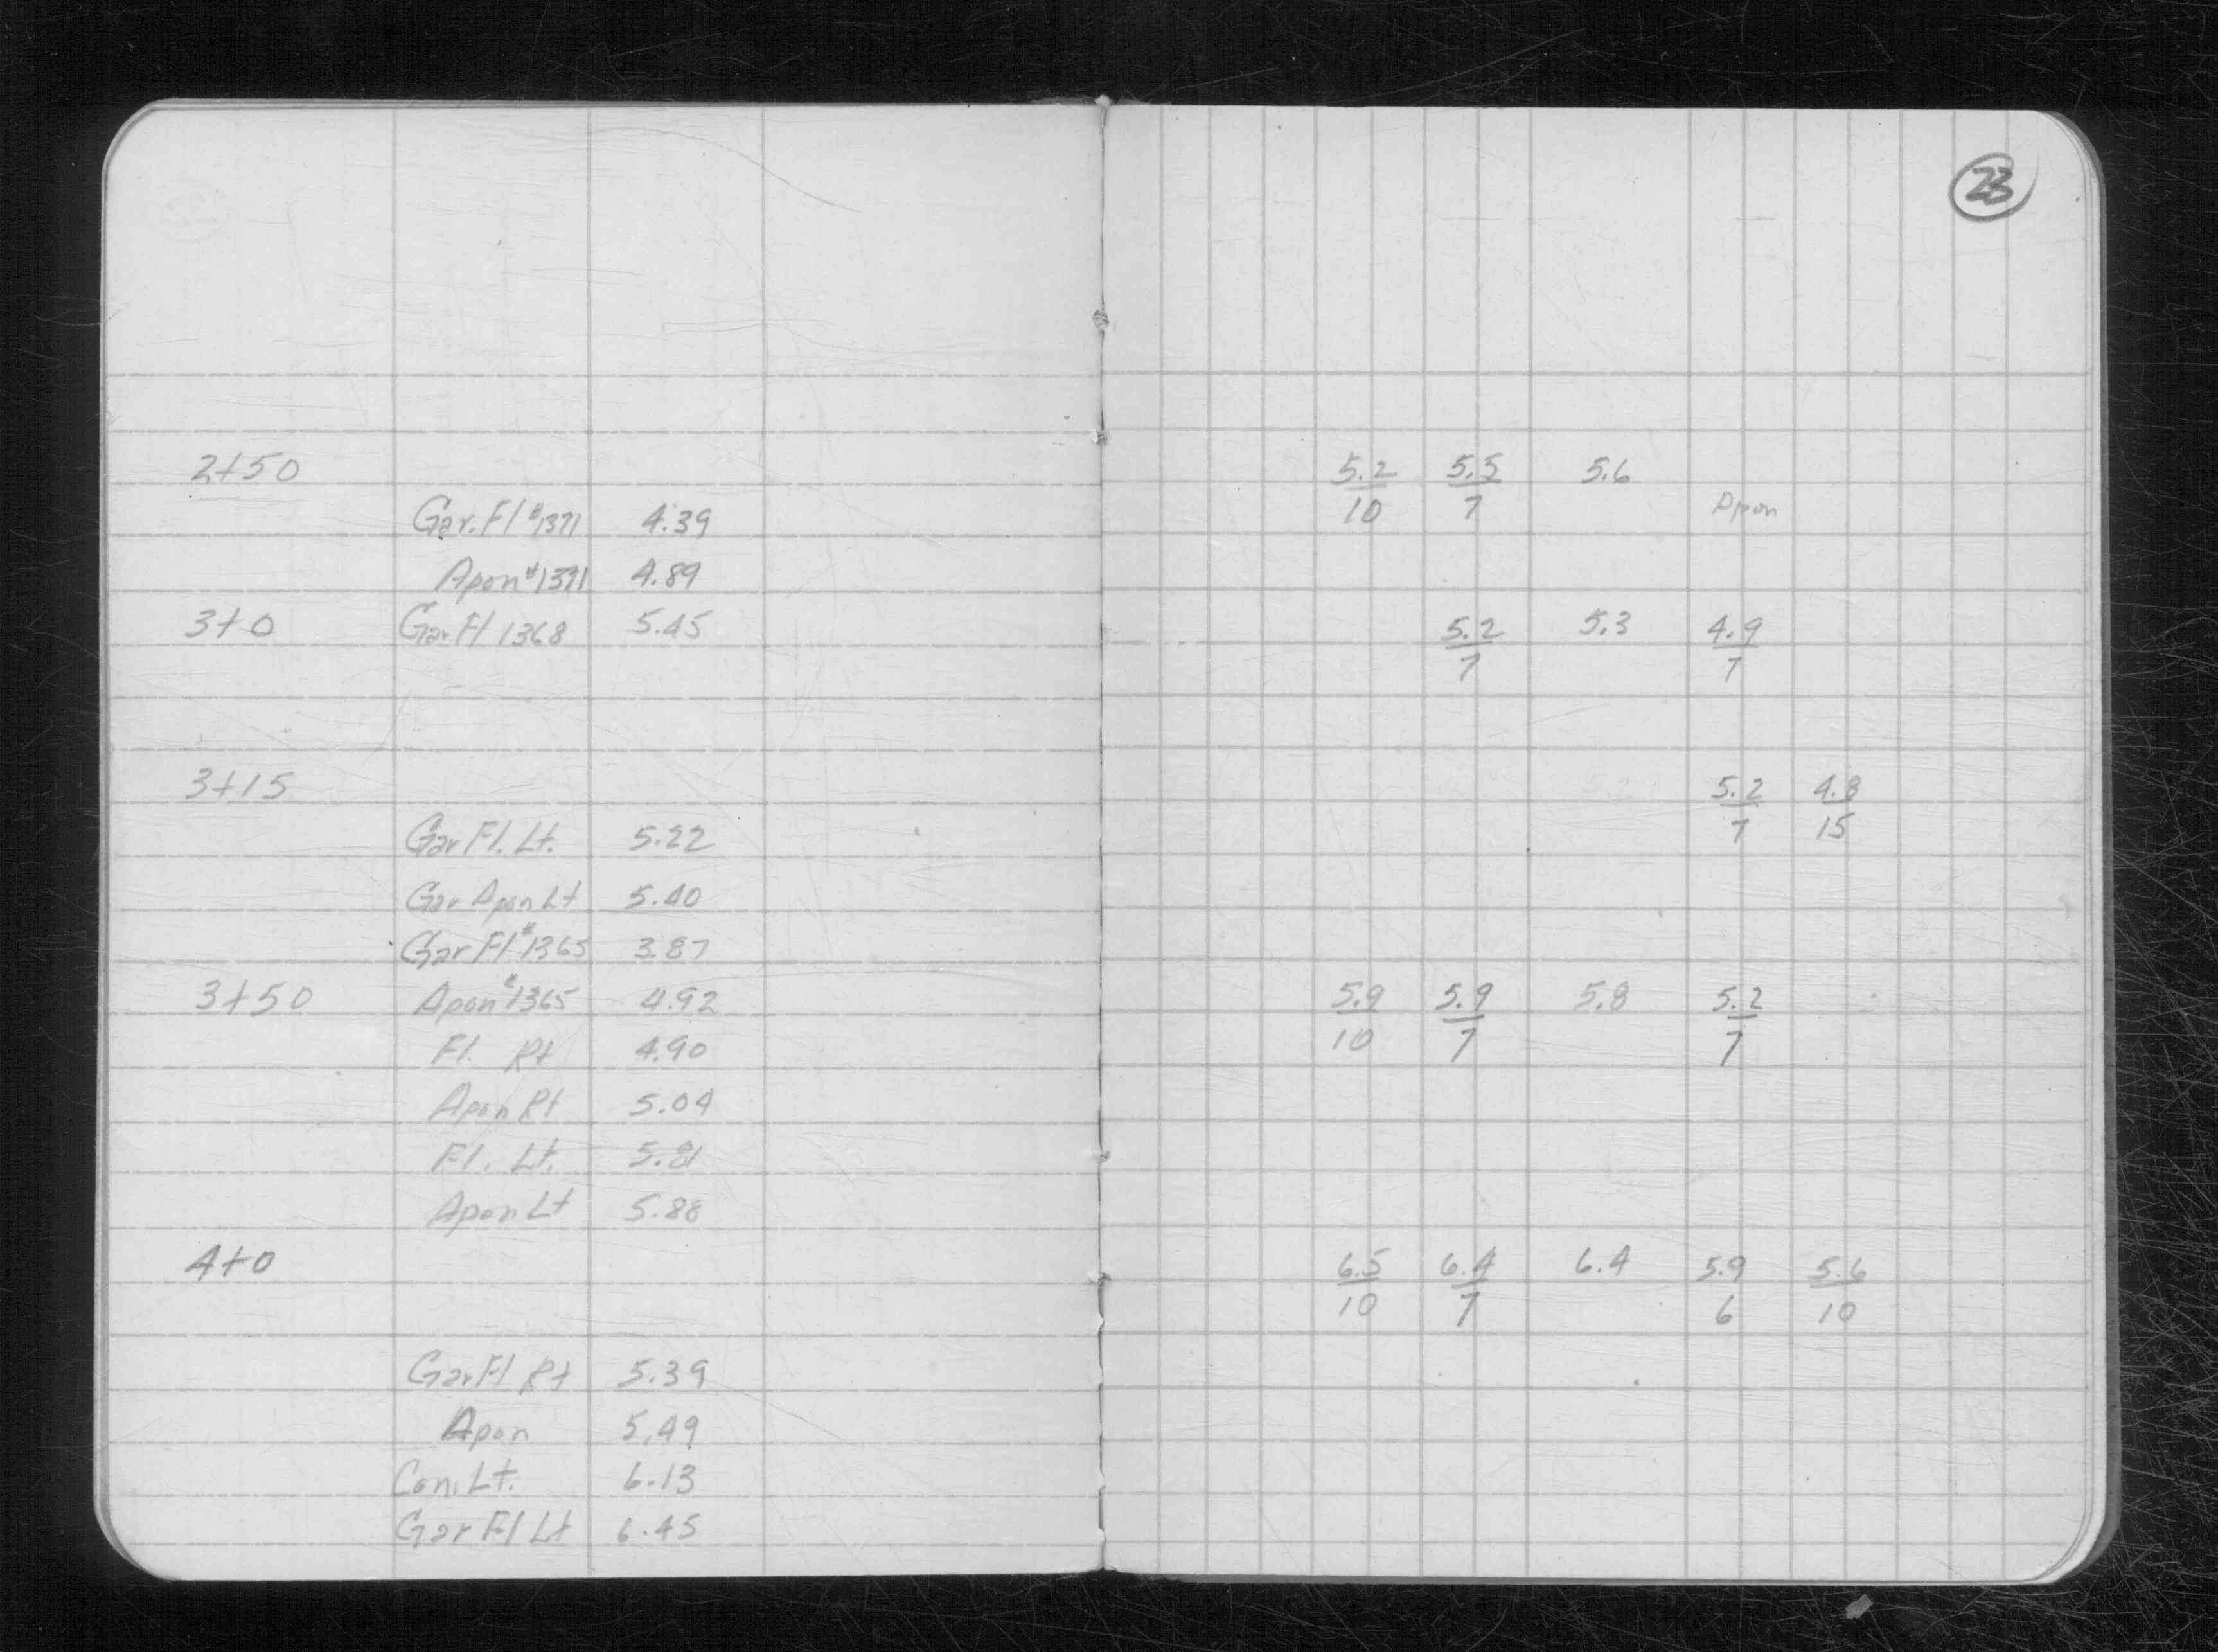 23
2+50 5.2/10 5.5/7 5.6
Gar. Fl #1371 4.39 Apon
Apon #1371 4.89
3+0 Gar Fl 1368 5.45 5.2/7 5.3 4.9/7
3+15 5.2/7 4.8/15
Gar Fl. Lt. 5.22
Gar Apon Lt 5.40
Gar Fl #1365 3.87
3+50 Apon #1365 4.92 5.9/10 5.9/7 5.8 5.2/7
Fl. Rt 4.90
Apon Rt 5.04
Fl. Lt.
Apon Lt 5.88
4+0 6.5/10 6.4/7 6.4 5.9/6 5.6/10
Gar Fl Rt 5.39
Apon 5.49
Con. Lt. 6.13
Gar Fl Lt 6.45